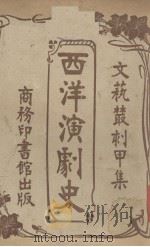 文藝叢刻甲集
西洋演劇史
商務印書館出版